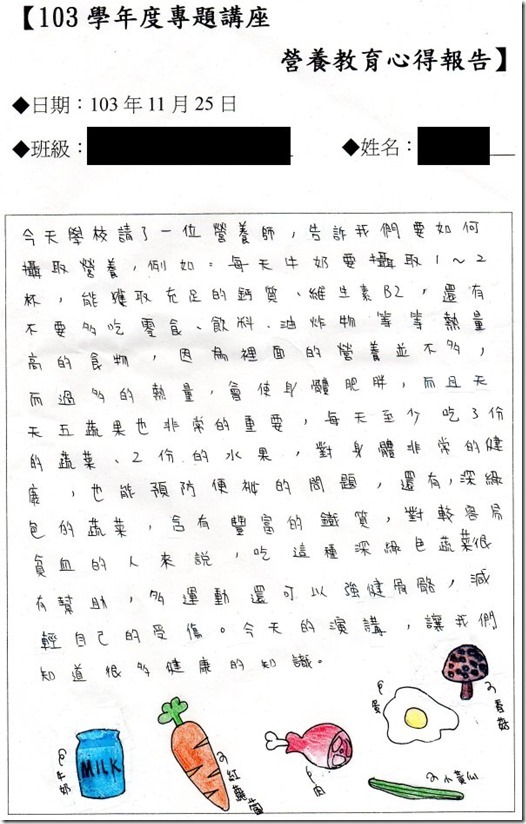 【103學年度專題講座
營養教育心得報告】
◆日期：103年11月25日
◆班級：
◆姓名：
今天學校請了一位營養師，告訴我們要如何
攝取營養，例如：每天牛奶要攝取1～2
杯，能獲取充足的鈣質、維生素B2，還有
不要多吃零食、飲料、油炸物等等熱量
高的食物，因為裡面的營養並不多，
而過多的熱量，會使身體肥胖，而且天
天五蔬果也非常的重要，每天至少吃3份
的蔬菜、2份的水果，對身體非常的健
康，也能預防便祕的問題，還有，深綠
色的蔬菜，含有豐富的鐵質，對較容易
貧血的人來說，吃這種深綠色蔬菜很
有幫助，多運動還可以強健骨骼，減
輕自己的受傷。今天的演講，讓我們
知道很多健康的知識。
牛奶
MILK
紅蘿蔔
肉
蛋
香菇
小黃瓜